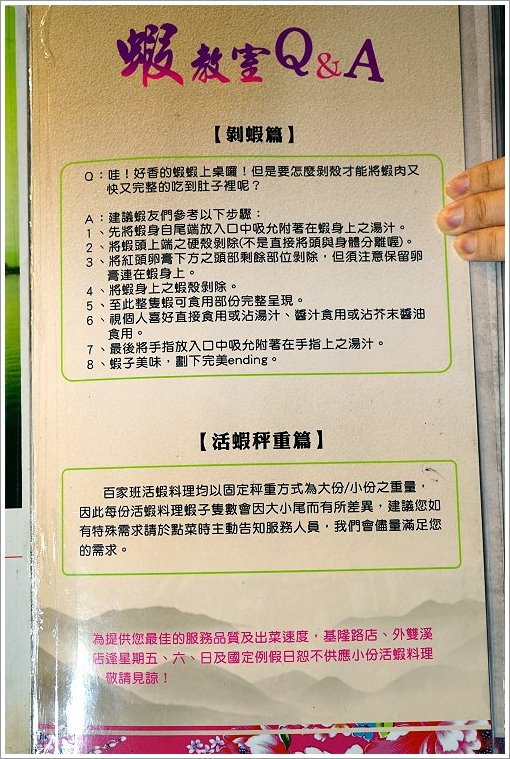 蝦教室Q&A
【剝蝦篇】
Q：哇！好香的蝦蝦上桌囉！但是要怎麼剝殼才能將蝦肉又
快又完整的吃到肚子裡呢？
A：建議蝦友們參考以下步驟：
1、先將蝦身自尾端放入口中吸允附著在蝦身上之湯汁。
2、將蝦頭上端之硬殼剝除(不是直接將頭與身體分離喔)。
3、將紅頭卵膏下方之頭部剩餘部位剝除，但須注意保留卵
膏連在蝦身上。
4、將蝦身上之蝦殼剝除。
5、至此整隻蝦可食用部份完整呈現。
6、視個人喜好直接食用或沾湯汁、醬汁食用或沾芥末醬油
食用。
7、最後將手指放入口中吸允附著在手指上之湯汁。
8、蝦子美味，劃下完美ending。
【活蝦秤重篇】
百家班活蝦料理均以固定秤重方式為大份/小份之重量，
因此每份活蝦料理蝦子隻數會因大小尾而有所差異，建議您如
有特殊需求請於點菜時主動告知服務人員，我們會儘量滿足您
的需求。
為提供您最佳的服務品質及出菜速度，基隆路店、外雙溪
店逢星期五、六、日及國定例假日恕不供應小份活蝦料理
，敬請見諒！